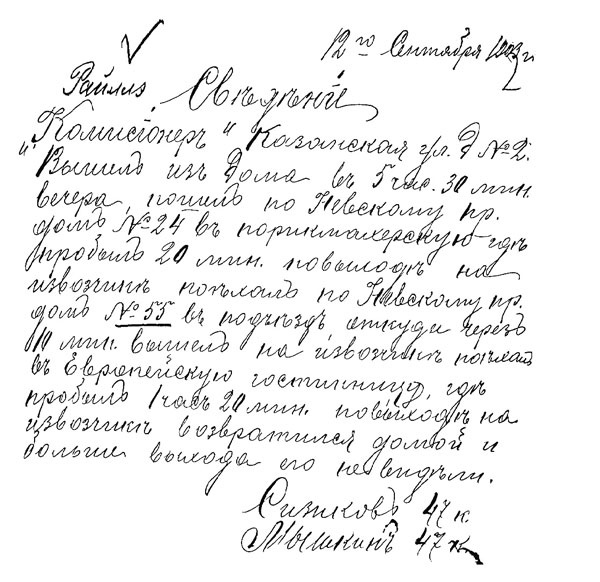 12го Сентября 1903 г.
Райллэ. Свѣдѣнiй
"Комисiонеръ" Казанская ул. Д № 2.
Вышелъ изъ дома въ 5 час. 30 мин.
вечера, пошелъ по Невскому пр.
домъ № 24 въ парикмахерскую гдѣ
пробылъ 20 мин. повыходѣ на
извозчикѣ поѣхалъ по Невскому пр.
домъ № 55 въ подъѣздъ откуда через
10 мин. вышелъ на извозчикѣ поѣхалъ
въ Европейскую гостинницу, гдѣ
пробылъ 1 часъ 20 мин. повыходѣ на
извозчикѣ возвратился домой и
больше выхода его не видѣли.
Сизиковъ 47 к
Мышкинъ 47 к